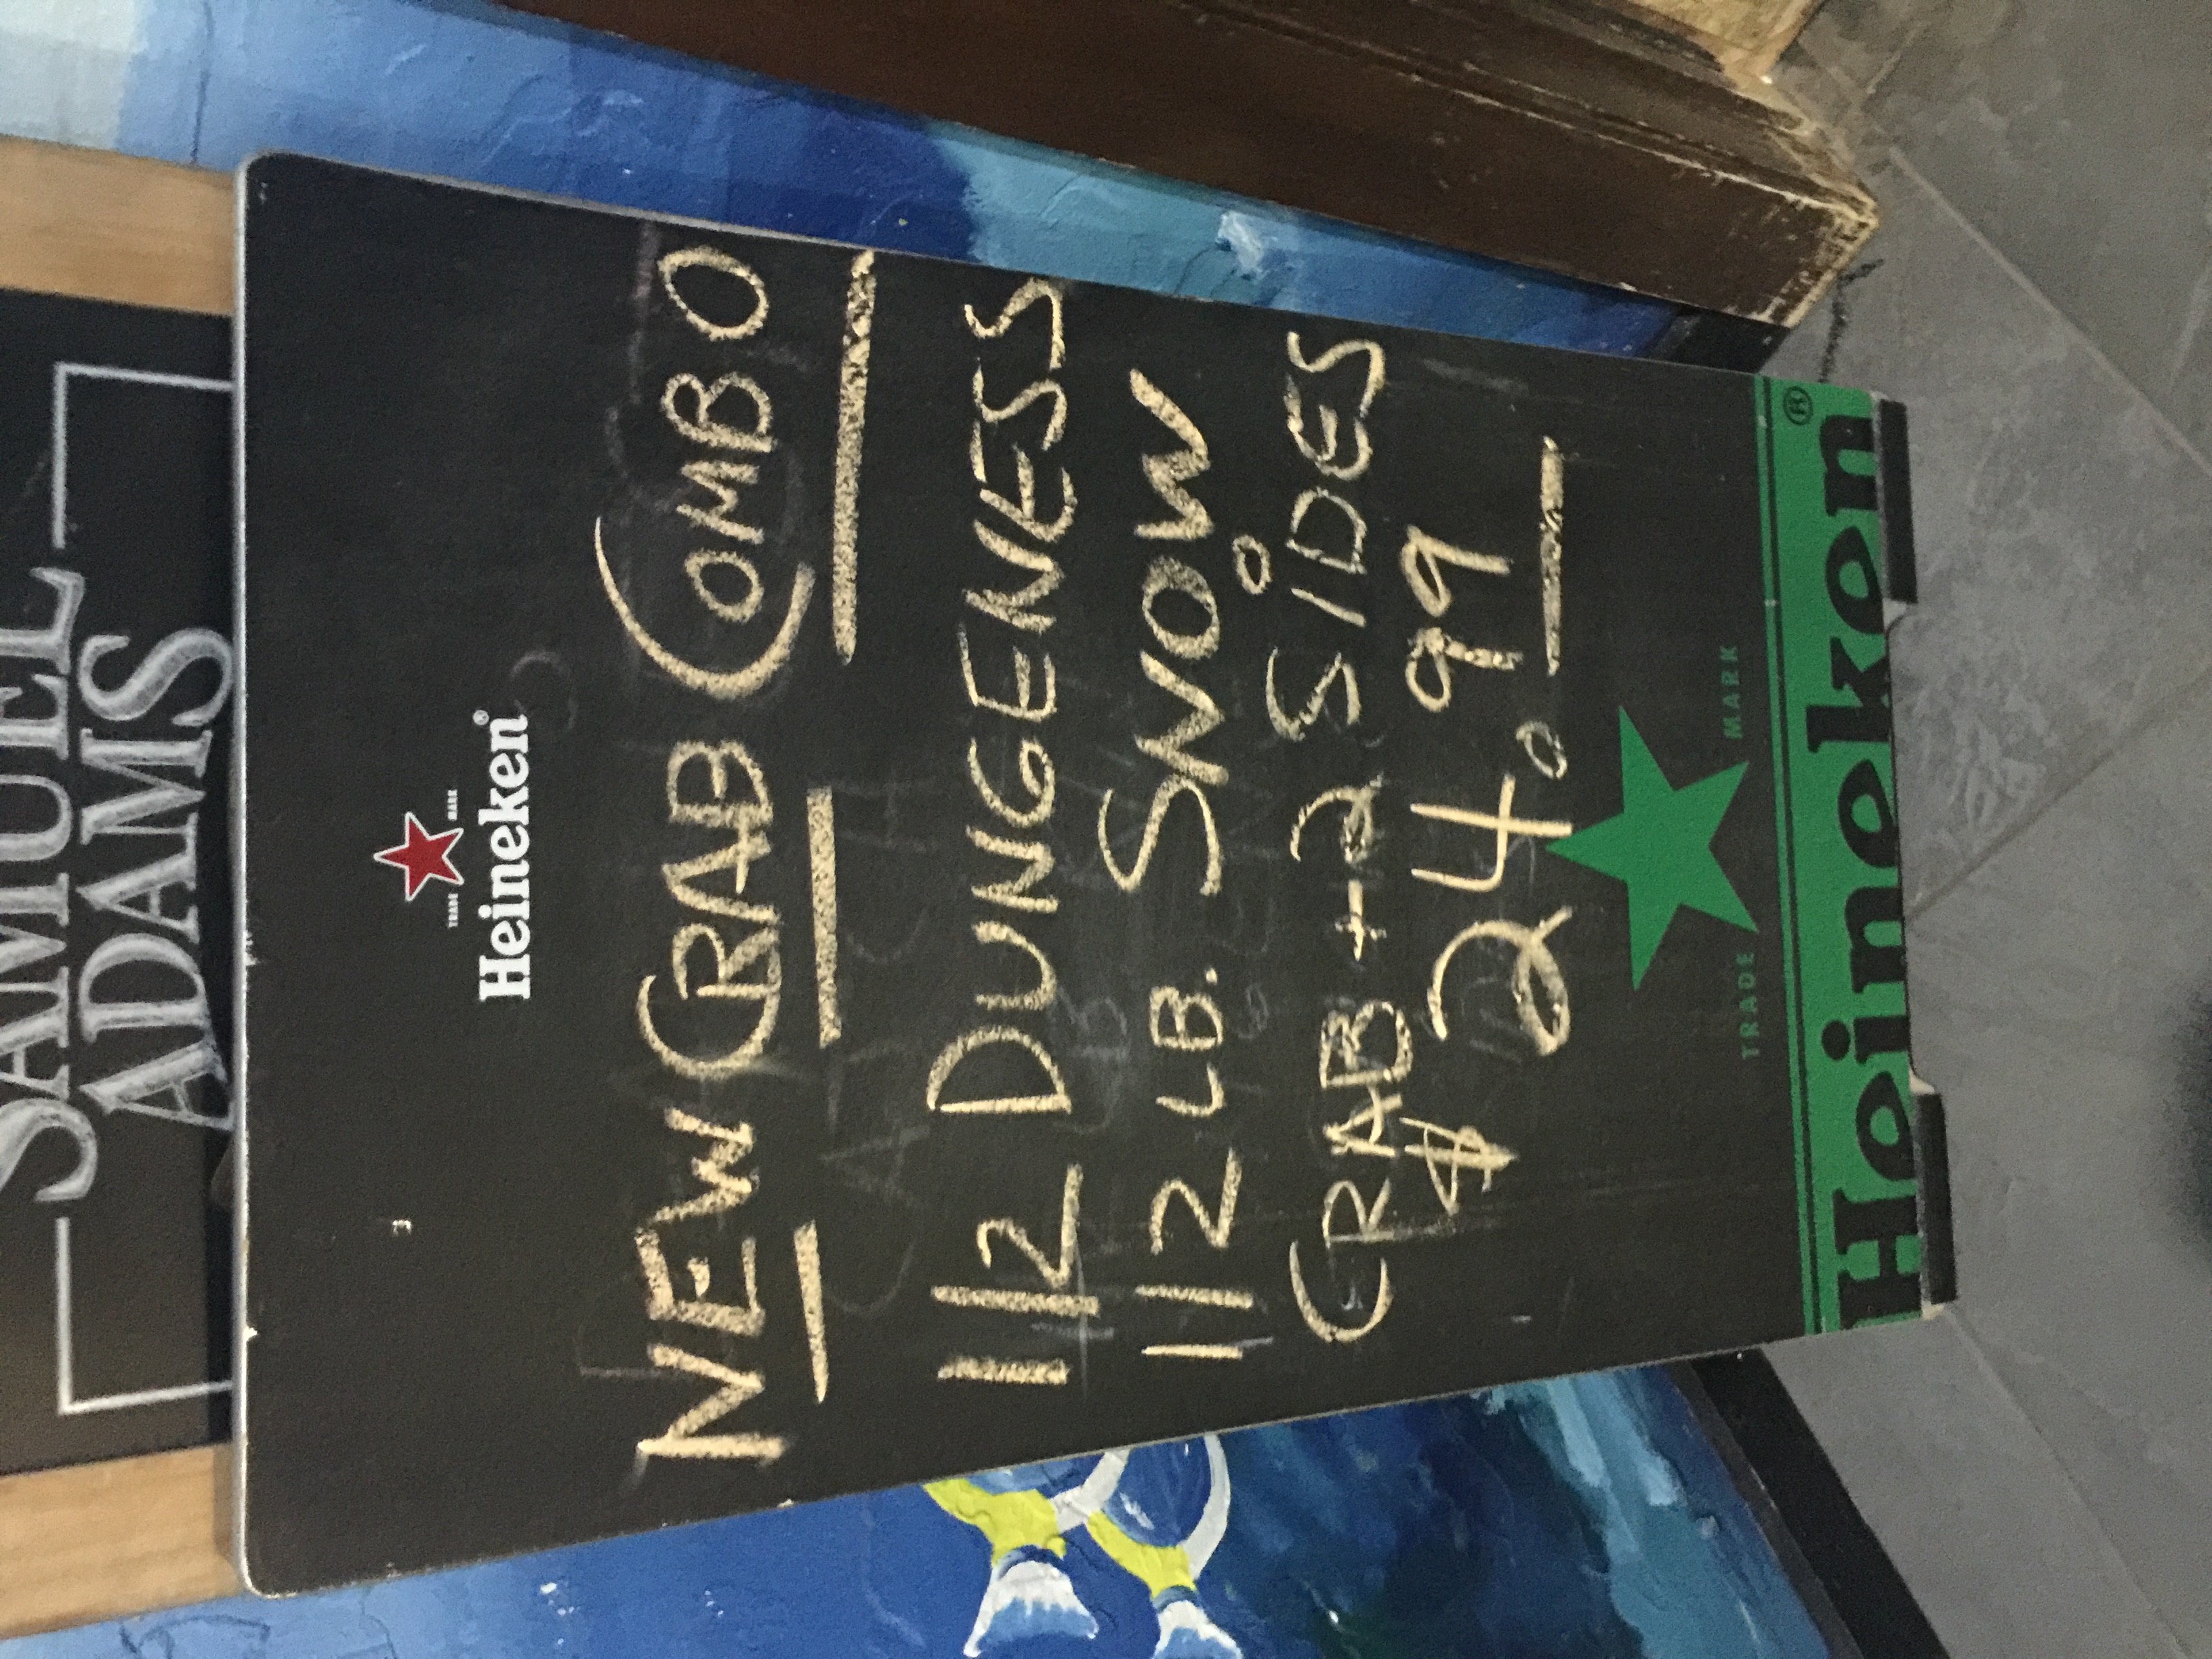 SAMUEL
ADAMS
TRADE MARK
Heineken®
NEW CRAB COMBO
1/2 DUNGENESS
1/2 LB. SNOW
CRAB + 2 SIDES
$24.99
TRADE MARK
Heineken®